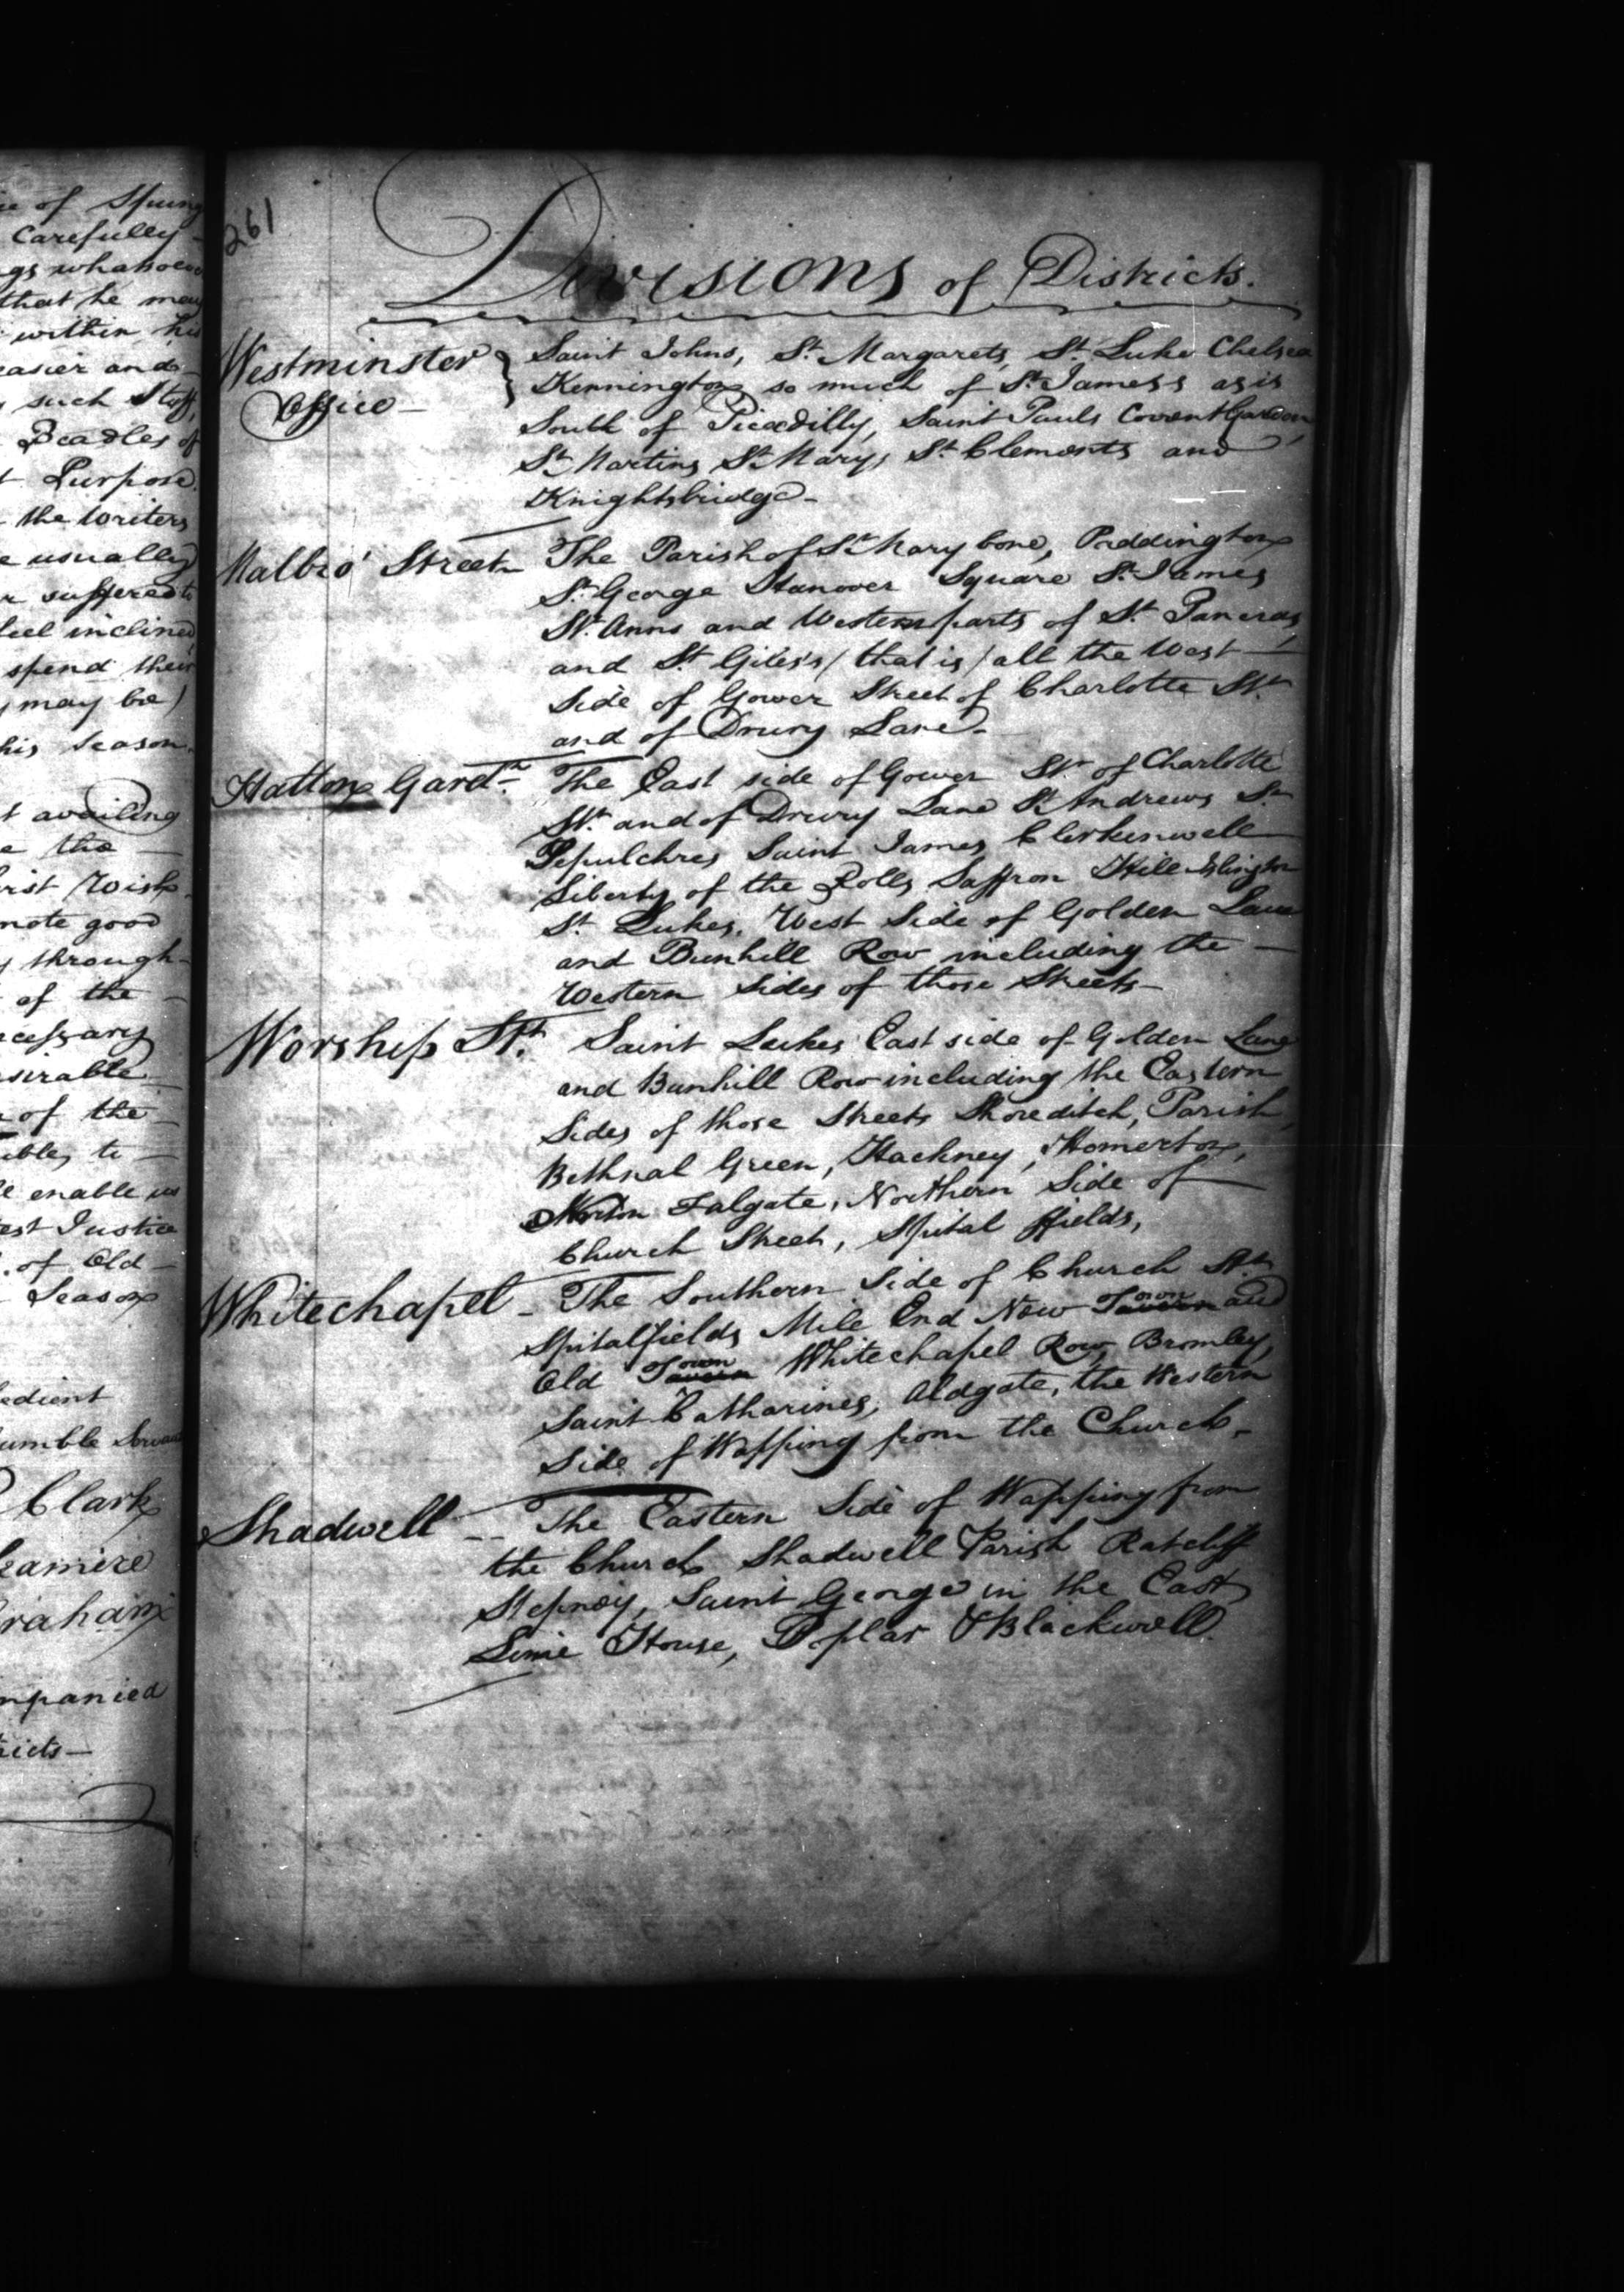 ce of Spring
Carefully
gs whatsoever
that he may
within his
easier and
such Stuff,
Beadles of
t Purpose.
the Writers
e usually
r suffered to
feel inclined
spend their
may be)
his Season.
t availing
e the
rist Wish
mote good
y through-
of the
necessary
sirable
of the
ible, to
ll enable us
est Justice
of Old
Season
edient
umble Servant
Clark
raham
mpanied
ricts
261
Divisions of Districts.
Westminster Office
Saint Johns, St. Margarets, St. Luke Chelsea
Kennington so much of St. James's as is
South of Picadilly, Saint Pauls Covent Garden,
St. Martins St. Marys, St. Clements and
Knightsbridge
Malbro' Street The Parish of St. Mary bone, Paddington
St. George Hanover Square St. James
St. Anns and Western parts of St. Pancras
and St. Giles's / that is / all the West
Side of Gower Street of Charlotte St.
and of Drury Lane.
Hatton Gardn. The East side of Gower St. of Charlotte
St. and of Drury Lane St. Andrews St.
Sepulchres Saint James Clerkenwell
Liberty of the Rolls Saffron Hill Islington
St. Lukes, West Side of Golden Lane
and Bunhill Row including the
Western Sides of those Streets
Worship St. Saint Lukes East side of Golden Lane
and Bunhill Row including the Eastern
Sides of those Streets Shoreditch, Parish,
Bethnal Green, Hackney, Homerton,
Norton Falgate, Northern Side of
Church Street, Spital ffields,
Whitechapel - The Southern Side of Church St.
Spitalfields Mile End New Tavern Town and
Old Tavern Town Whitechapel Row, Bromley,
Saint Catharines, Aldgate, the Western
Side of Wapping from the Church.
Shadwell - The Eastern Side of Wapping from
the Church Shadwell Parish Ratcliff
Stepney, Saint George in the East
Lime House, Poplar & Blackwell.